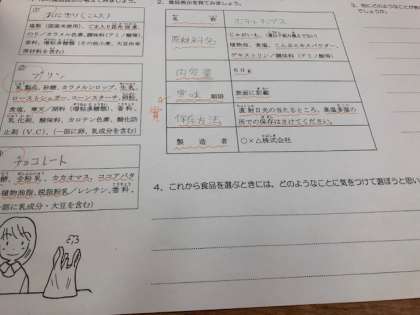 おにぎり(こんぶ)
のり/カラメル色素、調味料(アミノ酸等)
プリン
乳製品、砂糖、カラメルシロップ、生乳、
ローストシュガー、コーンスターチ、卵粉、
乳化剤、酸味料、カロテン色素、酸化防
止剤(V.C)、(一部に卵、乳成分を含む)
チョコレート
糖、全粉乳、カカオマス、ココアバター
植物油脂、脱脂粉乳/レシチン、香料、
一部に乳成分・大豆を含む)
名称
ポテトチップス
原材料名
じゃがいも
植物油、食塩、こんぶエキスパウダー、
デキストリン/調味料(アミノ酸等)
内容量
60g
賞味 期限
表面に記載
賞
保存方法
直射日光の当たるところ、高温多湿の
所での保存はさけてください。
製造者
○×△株式会社
4.これから食品を選ぶときには、どのようなことに気をつけて選ぼうと思い